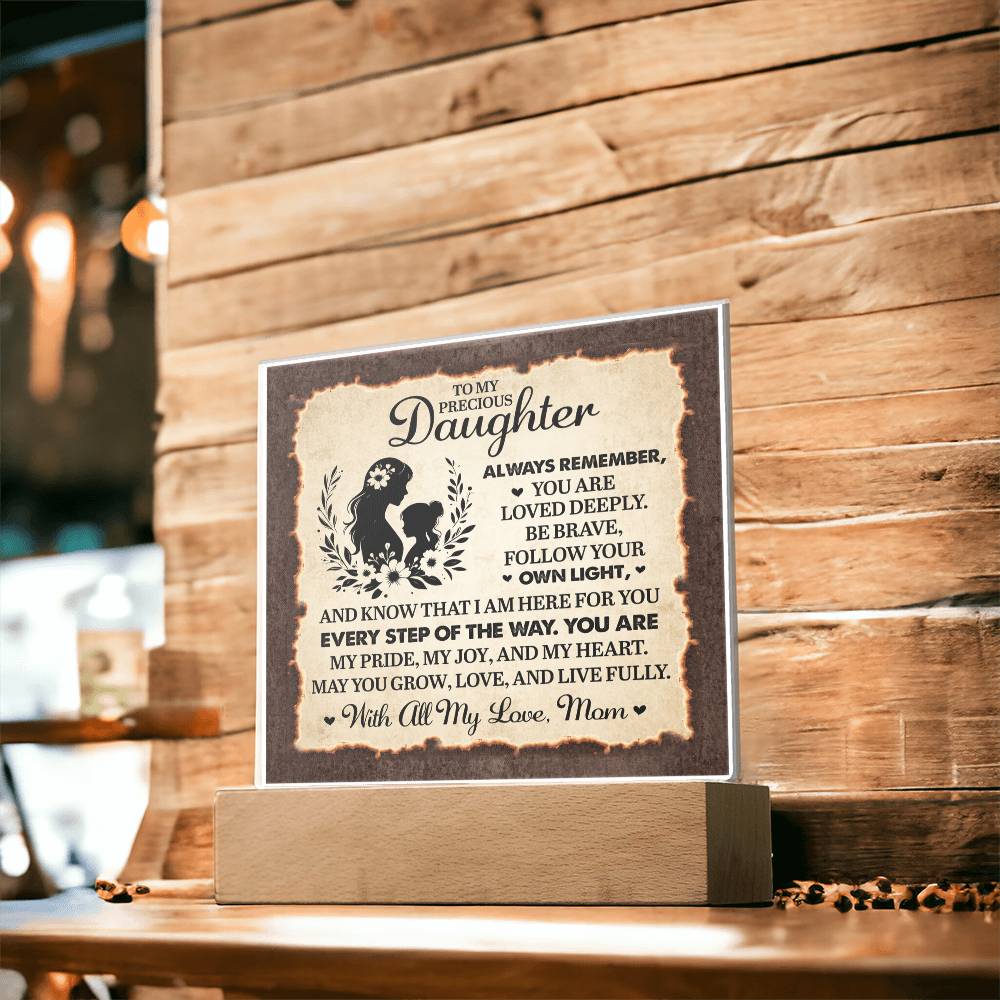 TO MY
PRECIOUS
Daughter
ALWAYS REMEMBER,
YOU ARE
LOVED DEEPLY.
BE BRAVE,
FOLLOW YOUR
OWN LIGHT,
AND KNOW THAT I AM HERE FOR YOU
EVERY STEP OF THE WAY. YOU ARE
MY PRIDE, MY JOY, AND MY HEART.
MAY YOU GROW, LOVE, AND LIVE FULLY.
With All My Love, Mom